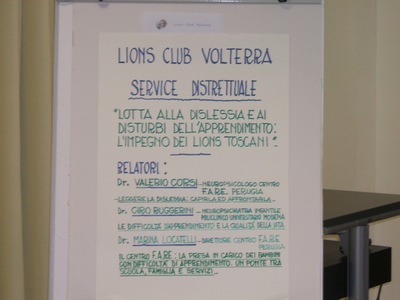 LIONS CLUB VOLTERRA
SERVICE DISTRETTUALE
"LOTTA ALLA DISLESSIA E AI
DISTURBI DELL'APPRENDIMENTO:
L'IMPEGNO DEI LIONS TOSCANI".
RELATORI:
Dr. VALERIO CORSI - NEUROPSICOLOGO CENTRO
F.A.RE. PERUGIA
LEGGERE LA DISLESSIA: CAPIRLA ED AFFRONTARLA -
Dr. CIRO RUGGERINI - NEUROPSICHIATRA INFANTILE
POLICLINICO UNIVERSITARIO MODENA
LE DIFFICOLTÀ D'APPRENDIMENTO E LA QUALITÀ DELLA VITA
Dr. MARINA LOCATELLI - DIRETTORE CENTRO F.A.RE.
PERUGIA
IL CENTRO F.A.RE: LA PRESA IN CARICO DEI BAMBINI
CON DIFFICOLTÀ DI APPRENDIMENTO. UN PONTE TRA
SCUOLA, FAMIGLIA E SERVIZI -